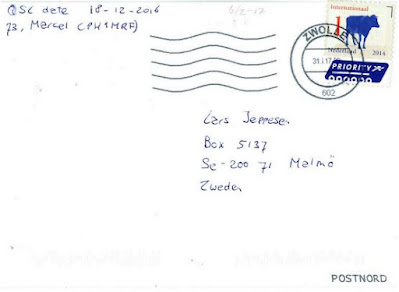 QSL date 18-12-2016
73, Marcel (PH1MRF)
6/2-17
Internationaal
1
Nederland 2014
PRIORITY
ZWOLLE
31.1.17
602
Lars Jeppesen
Box 5137
Se-200 71 Malmö
Zweden
POSTNORD